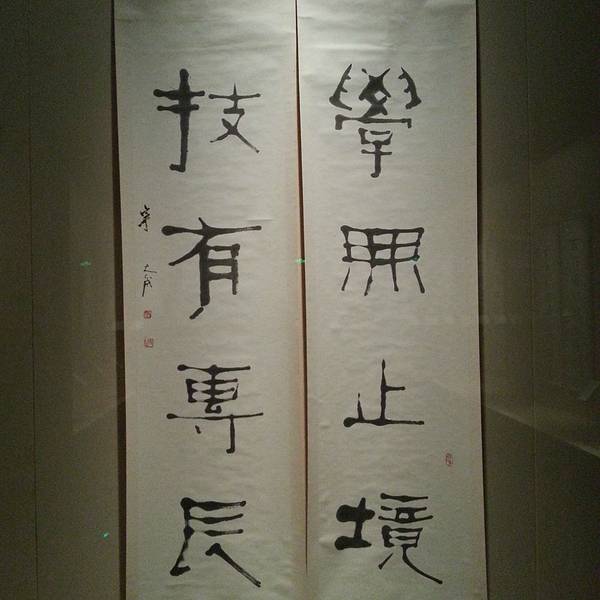 學無止境
技有專長